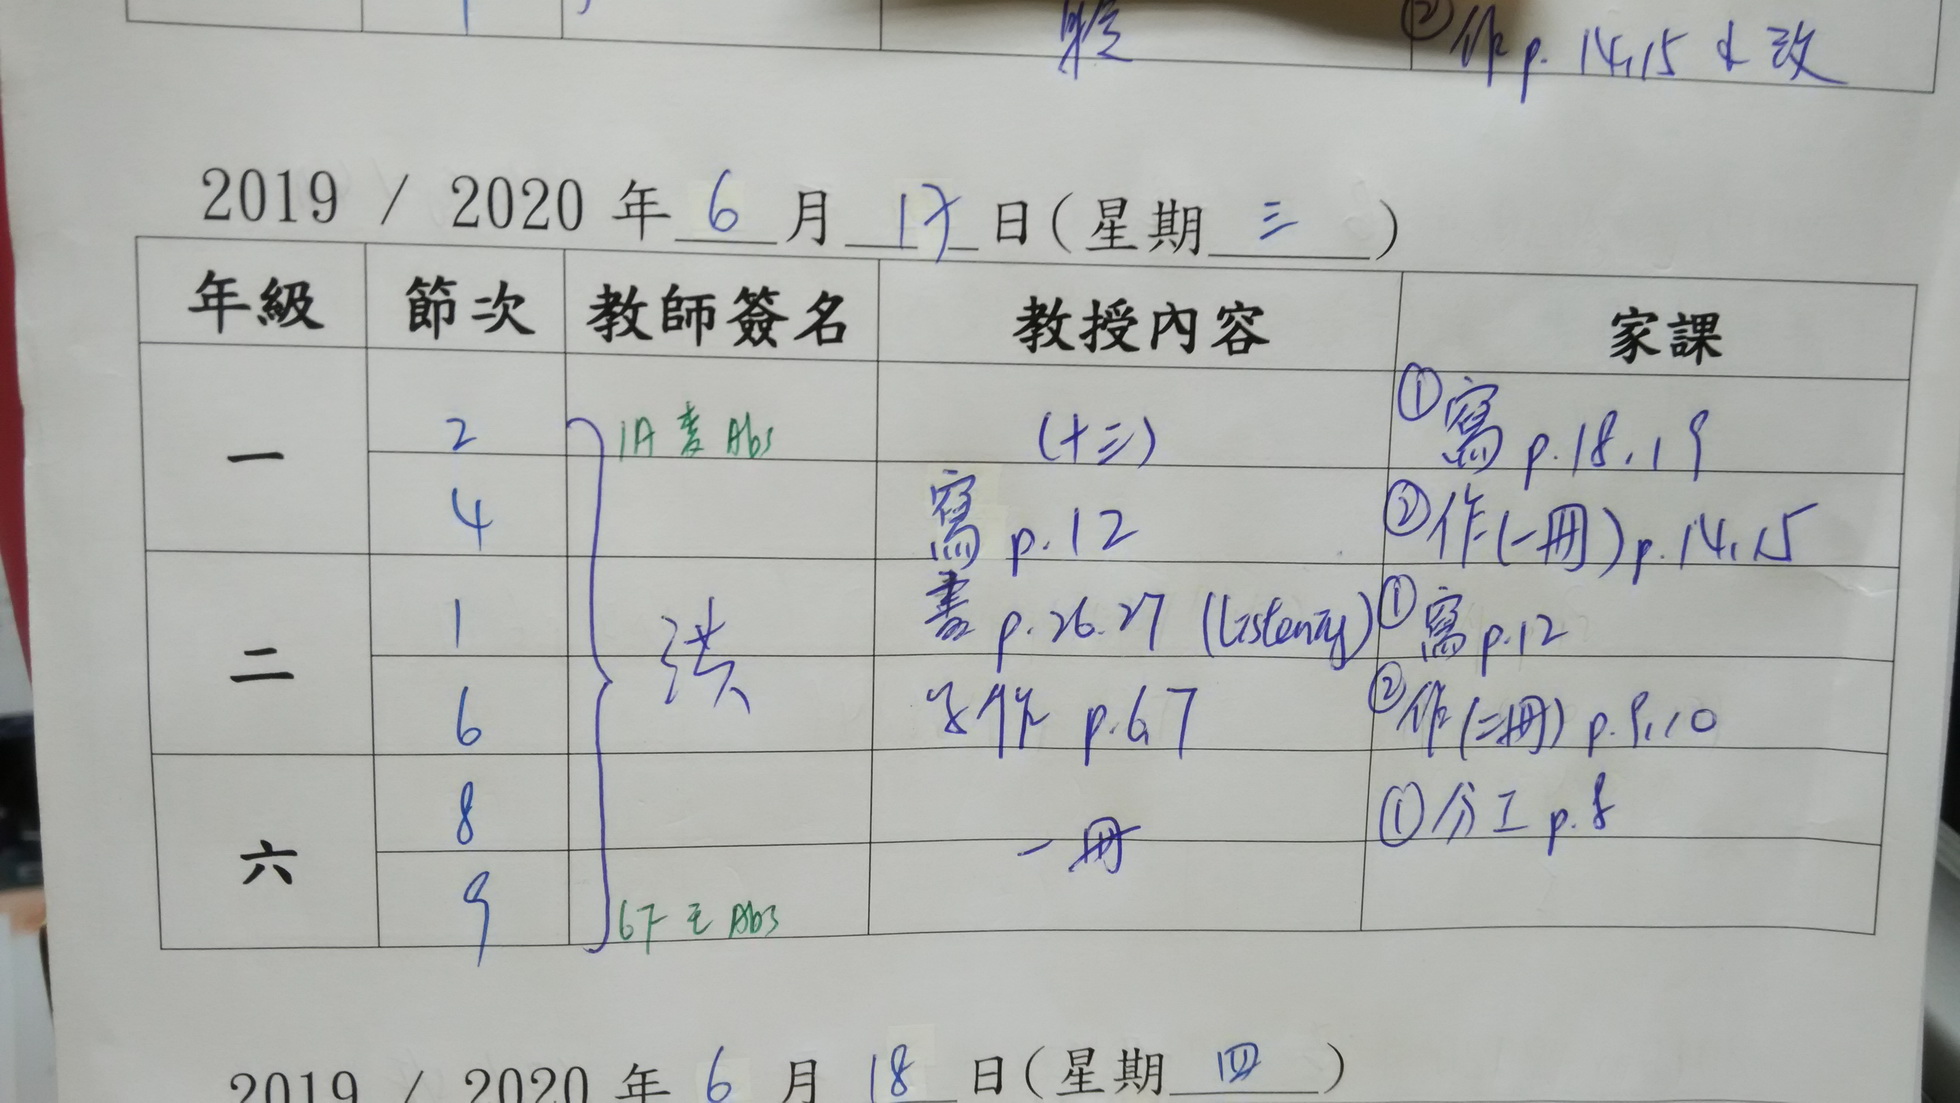 ② 作 p. 14,15 未改
2019 / 2020 年 6 月 17 日(星期 三 )
年級 節次 教師簽名 教授內容 家課
一 2 1A Abs (十三) ① 寫 p.18,19
4 寫 p.12 ② 作(一冊) p.14,15
二 1 書 p.26.27 (Listening) ① 寫 p.12
6 作 p.6,7 ② 作(二冊) p.9,10
六 8 一冊 ① 分工 p.8
9 Abs
2019 / 2020 年 6 月 18 日(星期 四 )